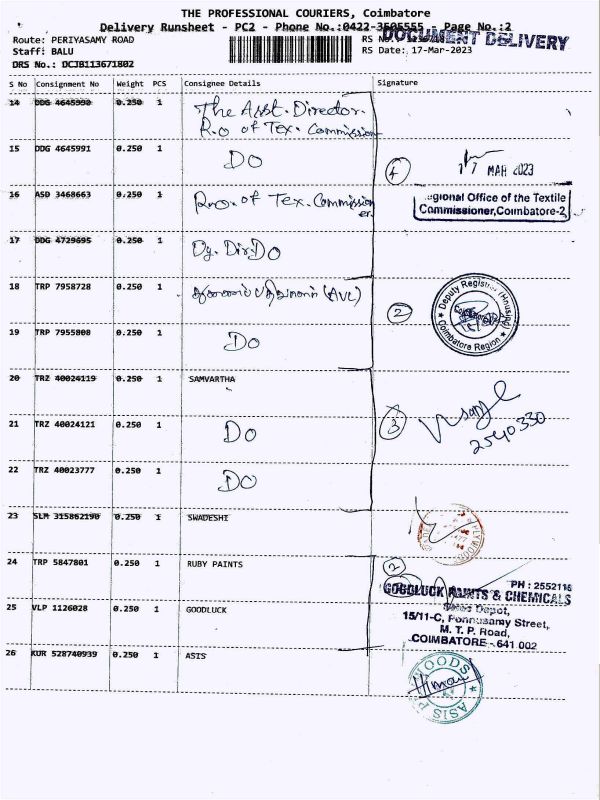 THE PROFESSIONAL COURIERS, Coimbatore
Delivery Runsheet - PC2 - Phone No.:0422-3505555 - Page No.:2
DOCUMENT DELIVERY
Route: PERIYASAMY ROAD
Staff: BALU
RS Date: 17-Mar-2023
DRS No.: DCJB113671802
S No Consignment No Weight PCS Consignee Details Signature
14 DDG 4645990 0.250 1 The Asst. Director.
R.o of Tex. Commission
15 DDG 4645991 0.250 1 DO
17 MAR 2023
16 ASD 3468663 0.250 1 R.o. of Tex. Commission
er.
Regional Office of the Textile
Commissioner, Coimbatore-2
17 DDG 4729695 0.250 1 Dy. Dir. DO
18 TRP 7958728 0.250 1 (AVC)
2
Deputy Registrar (Housing)
Coimbatore Region
19 TRP 7955808 0.250 1 DO
20 TRZ 40024119 0.250 1 SAMVARTHA
21 TRZ 40024121 0.250 1 DO
3
2540330
22 TRZ 40023777 0.250 1 DO
23 SLM 315862190 0.250 1 SWADESHI
24 TRP 5847801 0.250 1 RUBY PAINTS
2
PH : 2552116
GOODLUCK PAINTS & CHEMICALS
Sales Depot,
25 VLP 1126028 0.250 1 GOODLUCK
15/11-C, Ponnusamy Street,
M. T. P. Road,
COIMBATORE - 641 002
26 KUR 528740939 0.250 1 ASIS
ASIS